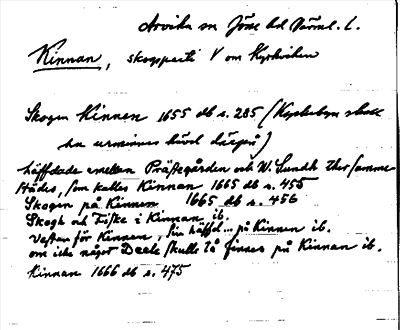 Arvika sn Jösse hd Värml. l.
Kinnan, skogsparti V om Kyrkviken
Skogen Kinnen 1655 db s. 285 (Kyrkebyn skall
ha urminnes hävd därpå)
häffdade emellan Prästegården och W. Sundh ther samme
städes, som kallas Kinnan 1665 db s. 455
Skogen på Kinnen 1665 db s. 456
Skogh och Fiske i Kinnan ib.
Vestan för Kinnen, sin häffd... på Kinnen ib.
om icke något Deele skulle få finnes på Kinnan ib.
Kinnan 1666 db s. 475